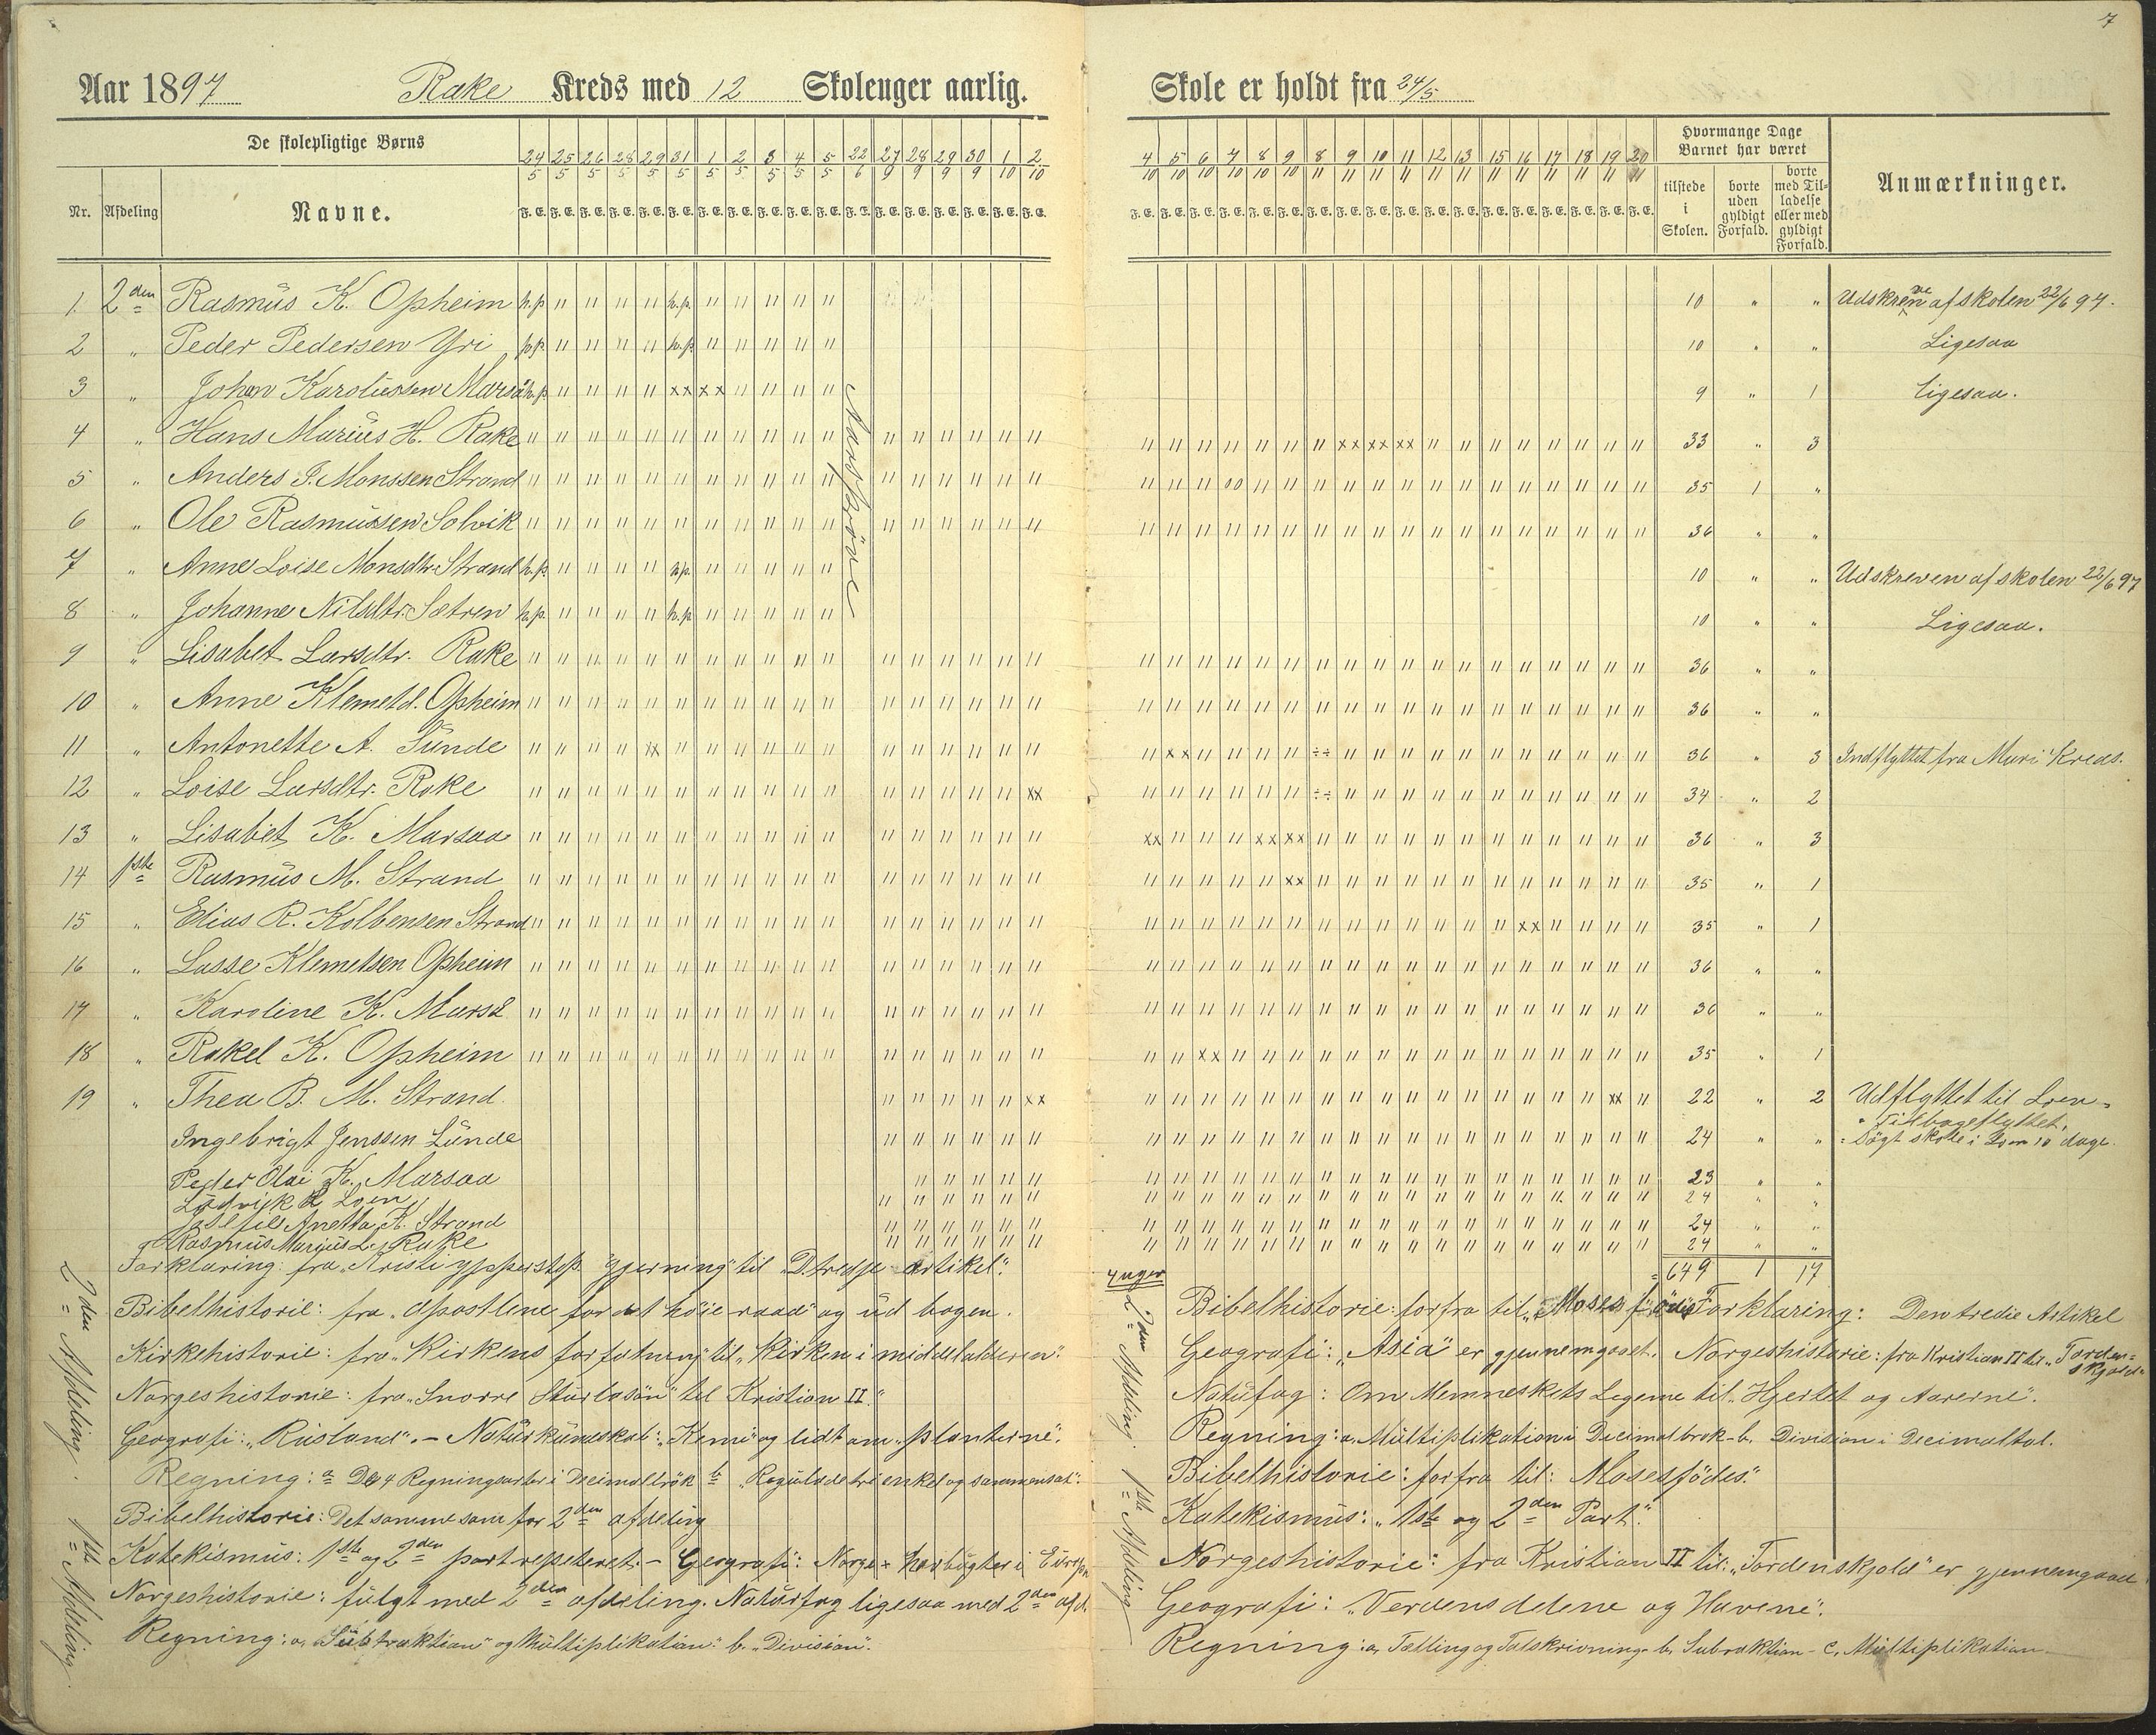 7
Aar 1897 Rake Kreds med 12 Skoleuger aarlig.
De skolepligtige Børns
Nr. Afdeling Navne.
24/5 25/5 26/5 28/5 29/5 31/5 1/5 2/5 3/5 4/5 5/5 22/6 27/9 28/9 29/9 30/9 1/10 2/10
F. E. F. E. F. E. F. E. F. E. F. E. F. E. F. E. F. E. F. E. F. E. F. E. F. E. F. E. F. E. F. E. F. E. F. E.
Skole er holdt fra 24/5
4/10 5/10 6/10 7/10 8/10 9/10 8/11 9/11 10/11 11/11 12/11 13/11 15/11 16/11 17/11 18/11 19/11 20/11
F. E. F. E. F. E. F. E. F. E. F. E. F. E. F. E. F. E. F. E. F. E. F. E. F. E. F. E. F. E. F. E. F. E. F. E.
Hvormange Dage Barnet har været
tilstede i Skolen.
borte uden gyldigt Forfald.
borte med Tilladelse eller med gyldigt Forfald.
Anmærkninger.
1. 2den Rasmus K. Opheim h.p. 10 " " Udskreven af skolen 22/6 97.
2 " Peder Pedersen Yri h.p. 10 " " Ligesaa
3 " Johan Karolussen Marså h.p. xx xx 9 " 1 Ligesaa.
4 " Hans Marius H. Rake xx xx xx 33 " 3
5 " Anders J. Monssen Strand 00 35 1 "
6 " Ole Rasmussen Solvik 36 " "
7 " Anne Loise Monsdtr. Strand h.p. 10 " " Udskreven af skolen 22/6 97
8 " Johanne Nilsdtr. Sætren h.p. 10 " " Ligesaa.
9 " Lisabet Larsdtr. Rake 36 " "
10 " Anne Klemetd. Opheim 36 " "
11 " Antonette A. Tunde xx xx ÷÷ 36 " 3 Indflyttet fra Muri Kreds.
12 " Loise Larsdtr. Rake xx ÷÷ 34 " 2
13 " Lisabet K. Marsaa xx xx xx 36 " 3
14 1ste Rasmus M. Strand xx 35 " 1
15 " Elias R. Kolbensen Strand xx 35 " 1
16 " Lasse Klemetsen Opheim 36 " "
17 " Karoline K. Marså 36 " "
18 " Rakel K. Opheim xx 35 " 1
19 " Thea B. M. Strand xx xx 22 " 2 Udflyttet til Loen
Tilbageflyttet.
Ingebrigt Jenssen Lunde 24 " " Søgt skole i Loen 10 dage.
Peder Olai K. Marsaa 23 " "
Ludvik R. Loen 24 " "
Josefie Anetta K. Strand 24 " "
Rasmus Marius L. Rake 24 " "
= 649 1 17
Aarsprøve
2den Afdeling.
Forklaring: fra "Kristi ypperstep. gjerning" til "D. tredje artikel".
Bibelhistorie: fra "Apostlene for det høie raad" og ud bogen.
Kirkehistorie: fra "Kirkens forfatning" til "Kirken i middelalderen".
Norgeshistorie: fra "Snorre Sturlasøn" til Kristian II.
Geografi: "Rusland". – Naturkundskab: "Kemi" og lidt om "planterne".
Regning: a De 4 Regningsarter i Decimalbrøk b "Reguladetri enkel og sammensat".
1ste Afdeling.
Bibelhistorie: Det samme som for 2den afdeling
Katekismus: 1ste og 2den part repeteret. – Geografi: Norge + Havbugter i Europa
Norgeshistorie: fulgt med 2den afdeling. Naturfag ligesaa med 2den afd.
Regning: a. "Subtraktion" og Multiplikation" b. "Division".
4 uger
2den Afdeling
Bibelhistorie: forfra til "Moses fødes" Forklaring: Den tredie Artikel
Geografi: "Asia" er gjennemgaaet. Norgeshistorie: fra Kristian II til "Tordenskjold".
Naturfag: Om Menneskets Legeme til "Hjertet og Aarerne".
Regning: a. Multiplikation i Decimalbrøk – b. Division i Decimaltal.
1ste Afdeling
Bibelhistorie: forfra til: Moses fødes."
Katekismus: "1ste og 2den Part."
Norgeshistorie: fra Kristian II til: "Tordenskjold" er gjennemgaaet
Geografi: "Verdensdelene og Havene".
Regning: a. Tælling og Talskrivning – b. Subraktion – c. Multiplikation